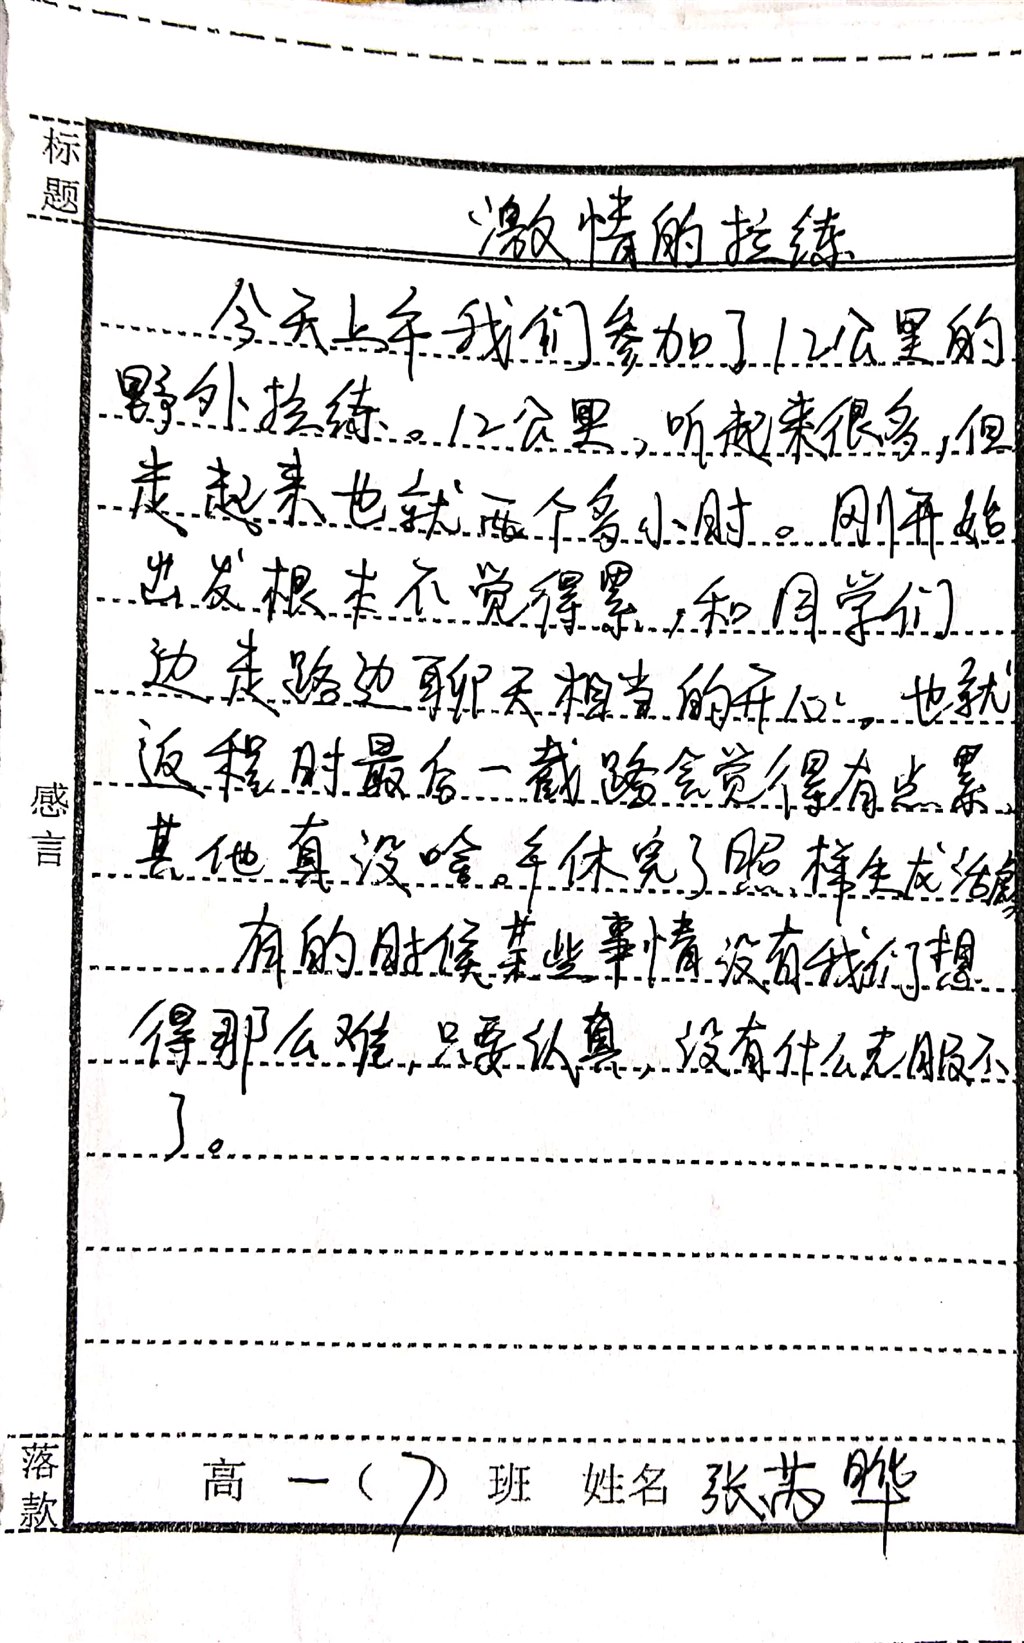 标题
激情的拉练
今天上午我们参加了12公里的
野外拉练。12公里,听起来很多,但
走起来也就两个多小时。刚开始
出发根本不觉得累,和同学们
边走路边聊天相当的开心。也就
返程时最后一截路会觉得有点累,
其他真没啥。午休完了照样生龙活虎
有的时候某些事情没有我们想
得那么难,只要认真,没有什么克服不
了。
感言
落款
高一(7)班 姓名 张芮晔